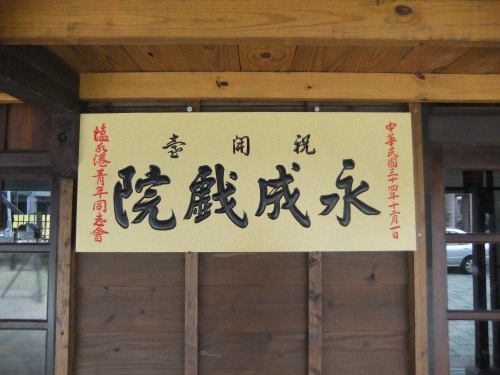 中華民國三十四年十二月一日
祝開臺
永成戲院
塩水港青年同志會